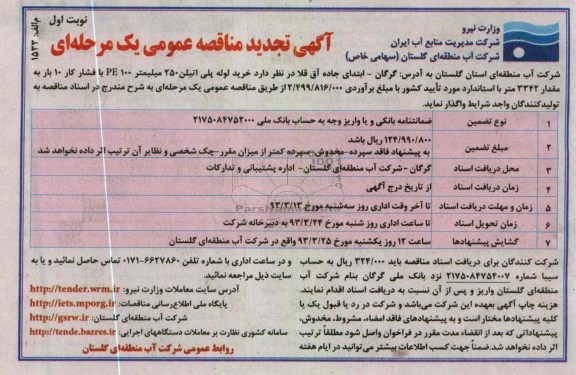 نوبت اول
م‌الف: ۱۵۲۳
وزارت نیرو
شرکت مدیریت منابع آب ایران
شرکت آب منطقه‌ای گلستان (سهامی خاص)
آگهی تجدید مناقصه عمومی یک مرحله‌ای
شرکت آب منطقه‌ای استان گلستان به آدرس: گرگان - ابتدای جاده آق قلا در نظر دارد خرید لوله پلی اتیلن ۲۵۰ میلیمتر PE ۱۰۰ با فشار کار ۱۰ بار به
مقدار ۳۳۴۲ متر با استاندارد مورد تأیید کشور با مبلغ برآوردی ۲/۴۹۹/۸۱۶/۰۰۰ از طریق مناقصه عمومی یک مرحله‌ای به شرح مندرج در اسناد مناقصه به
تولیدکنندگان واجد شرایط واگذار نماید.
۱ نوع تضمین ضمانتنامه بانکی و یا واریز وجه به حساب بانک ملی ۲۱۷۵۰۸۴۷۵۲۰۰۰
۲ مبلغ تضمین ۱۲۴/۹۹۰/۸۰۰ ریال باشد
به پیشنهاد فاقد سپرده-مخدوش-سپرده کمتر از میزان مقرر-چک شخصی و نظایر آن ترتیب اثر داده نخواهد شد
۳ محل دریافت اسناد گرگان - شرکت آب منطقه‌ای گلستان - اداره پشتیبانی و تدارکات
۴ زمان دریافت اسناد از تاریخ درج آگهی
۵ زمان و مهلت دریافت اسناد تا آخر وقت اداری روز سه‌شنبه مورخ ۹۳/۳/۱۳
۶ زمان تحویل اسناد تا ساعت اداری روز شنبه مورخ ۹۳/۳/۲۴ به دبیرخانه شرکت
۷ گشایش پیشنهادها ساعت ۱۲ روز یکشنبه مورخ ۹۳/۳/۲۵ واقع در شرکت آب منطقه‌ای گلستان
شرکت کنندگان برای دریافت اسناد مناقصه باید ۳۳۴/۰۰۰ ریال به حساب
سیبا شماره ۲۱۷۵۰۸۴۷۵۴۰۰۷ نزد بانک ملی گرگان بنام شرکت آب
منطقه‌ای گلستان واریز و پس از آن نسبت به دریافت اسناد اقدام نمایند.
هزینه چاپ آگهی بعهده این شرکت می‌باشد و شرکت در رد یا قبول یک یا
کلیه پیشنهادها مختار است و به پیشنهادهای فاقد امضاء، مشروط، مخدوش،
پیشنهاداتی که بعد از انقضاء مدت مقرر در فراخوان واصل شود مطلقاً ترتیب
اثر داده نخواهد شد. ضمناً جهت کسب اطلاعات بیشتر می‌توانید در ایام هفته
و در ساعت اداری با شماره تلفن ۶۶۲۷۸۶۰-۰۱۷۱ تماس حاصل نمائید و یا به
سایت ذیل مراجعه نمائید.
آدرس سایت معاملات وزارت نیرو: http://tender.wrm.ir
پایگاه ملی اطلاع‌رسانی مناقصات: http://iets.mporg.ir
شرکت آب منطقه‌ای گلستان: http://gsrw.ir
سامانه کشوری نظارت بر معاملات دستگاههای اجرایی: http://tende.bazres.ir
روابط عمومی شرکت آب منطقه‌ای گلستان